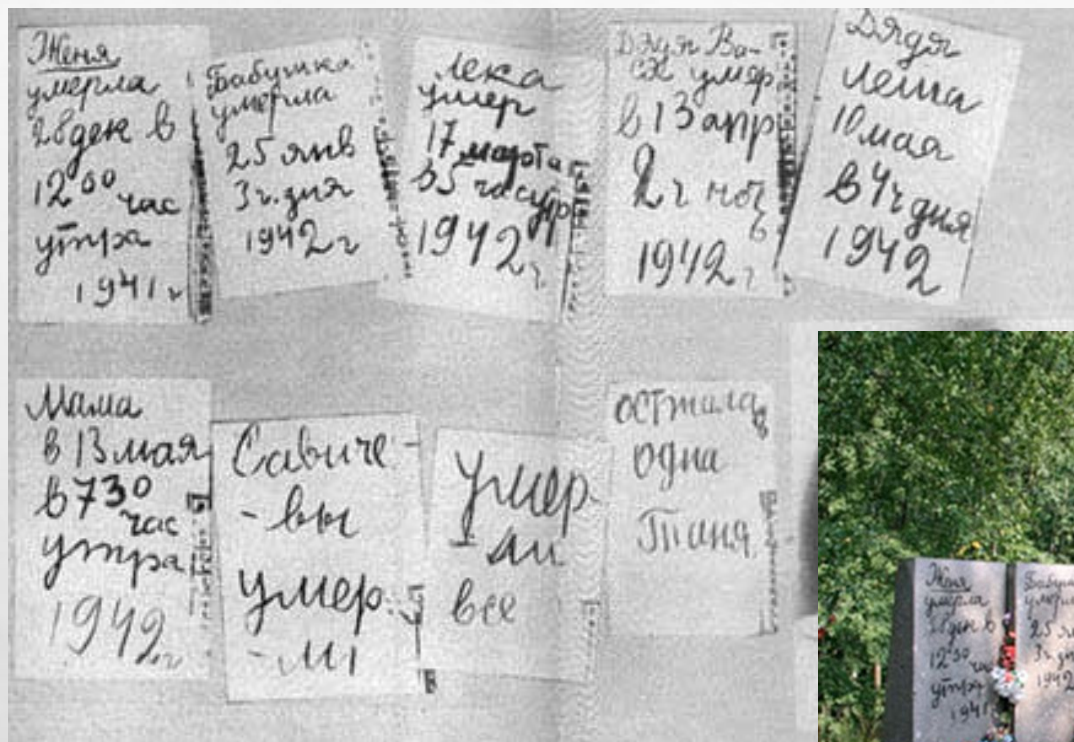 Женя
умерла
28 дек в
12 00 час
утра
1941 г
Бабушка
умерла
25 янв
3 ч. дня
1942 г
Лека
умер
17 марта
в 5 час утр
1942 г.
Дядя Ва-
ся умер
в 13 апр
2 ч ноч
ь
1942 г
Дядя
Леша
10 мая
в 4 ч дня
1942
Мама
в 13 мая
в 7 30
час
утра
1942 г
Савиче-
-вы
умер
-ли
умер
-ли
все
осталась
одна
Таня
Женя
умерла
28 дек в
12 30 час
утра
1941
Бабушк
умерла
25 ян
3 ч. дн
1942